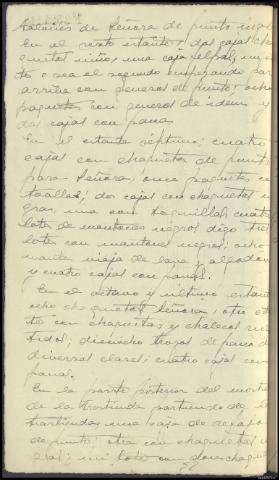 talones de señora de punto ingl
En el sexto estante; dos cajas cha
quetas niño, una caja felpas, ing
to o sea el segundo empezando por
arriba con generos de punto; ocho
paquetes con generos de idem y
dos cajas con pana.
En el estante séptimo; cuatro
cajas con chaquetas de punto
para señora, once paquetes con
toallas; dos cajas con chaquetas
gras, una con toquillas, cuatro
lotes de mantones negros digo tres
lotes con mantones negros; ocho
mantas viaje de lana y algodon
y cuatro cajas con panas.
En el octavo y ultimo estante
ocho chaquetas señora; otro
tos con chaquetas y chalecos
tidos; dieciocho trozos de pana de
diversas clases; cuatro cajas con
pana.
En la parte posterior del mostra
de la trastienda partiendo de la
trastienda una caja de refajos
de punto; otra con chaquetas
gras; un lote con doce chaque